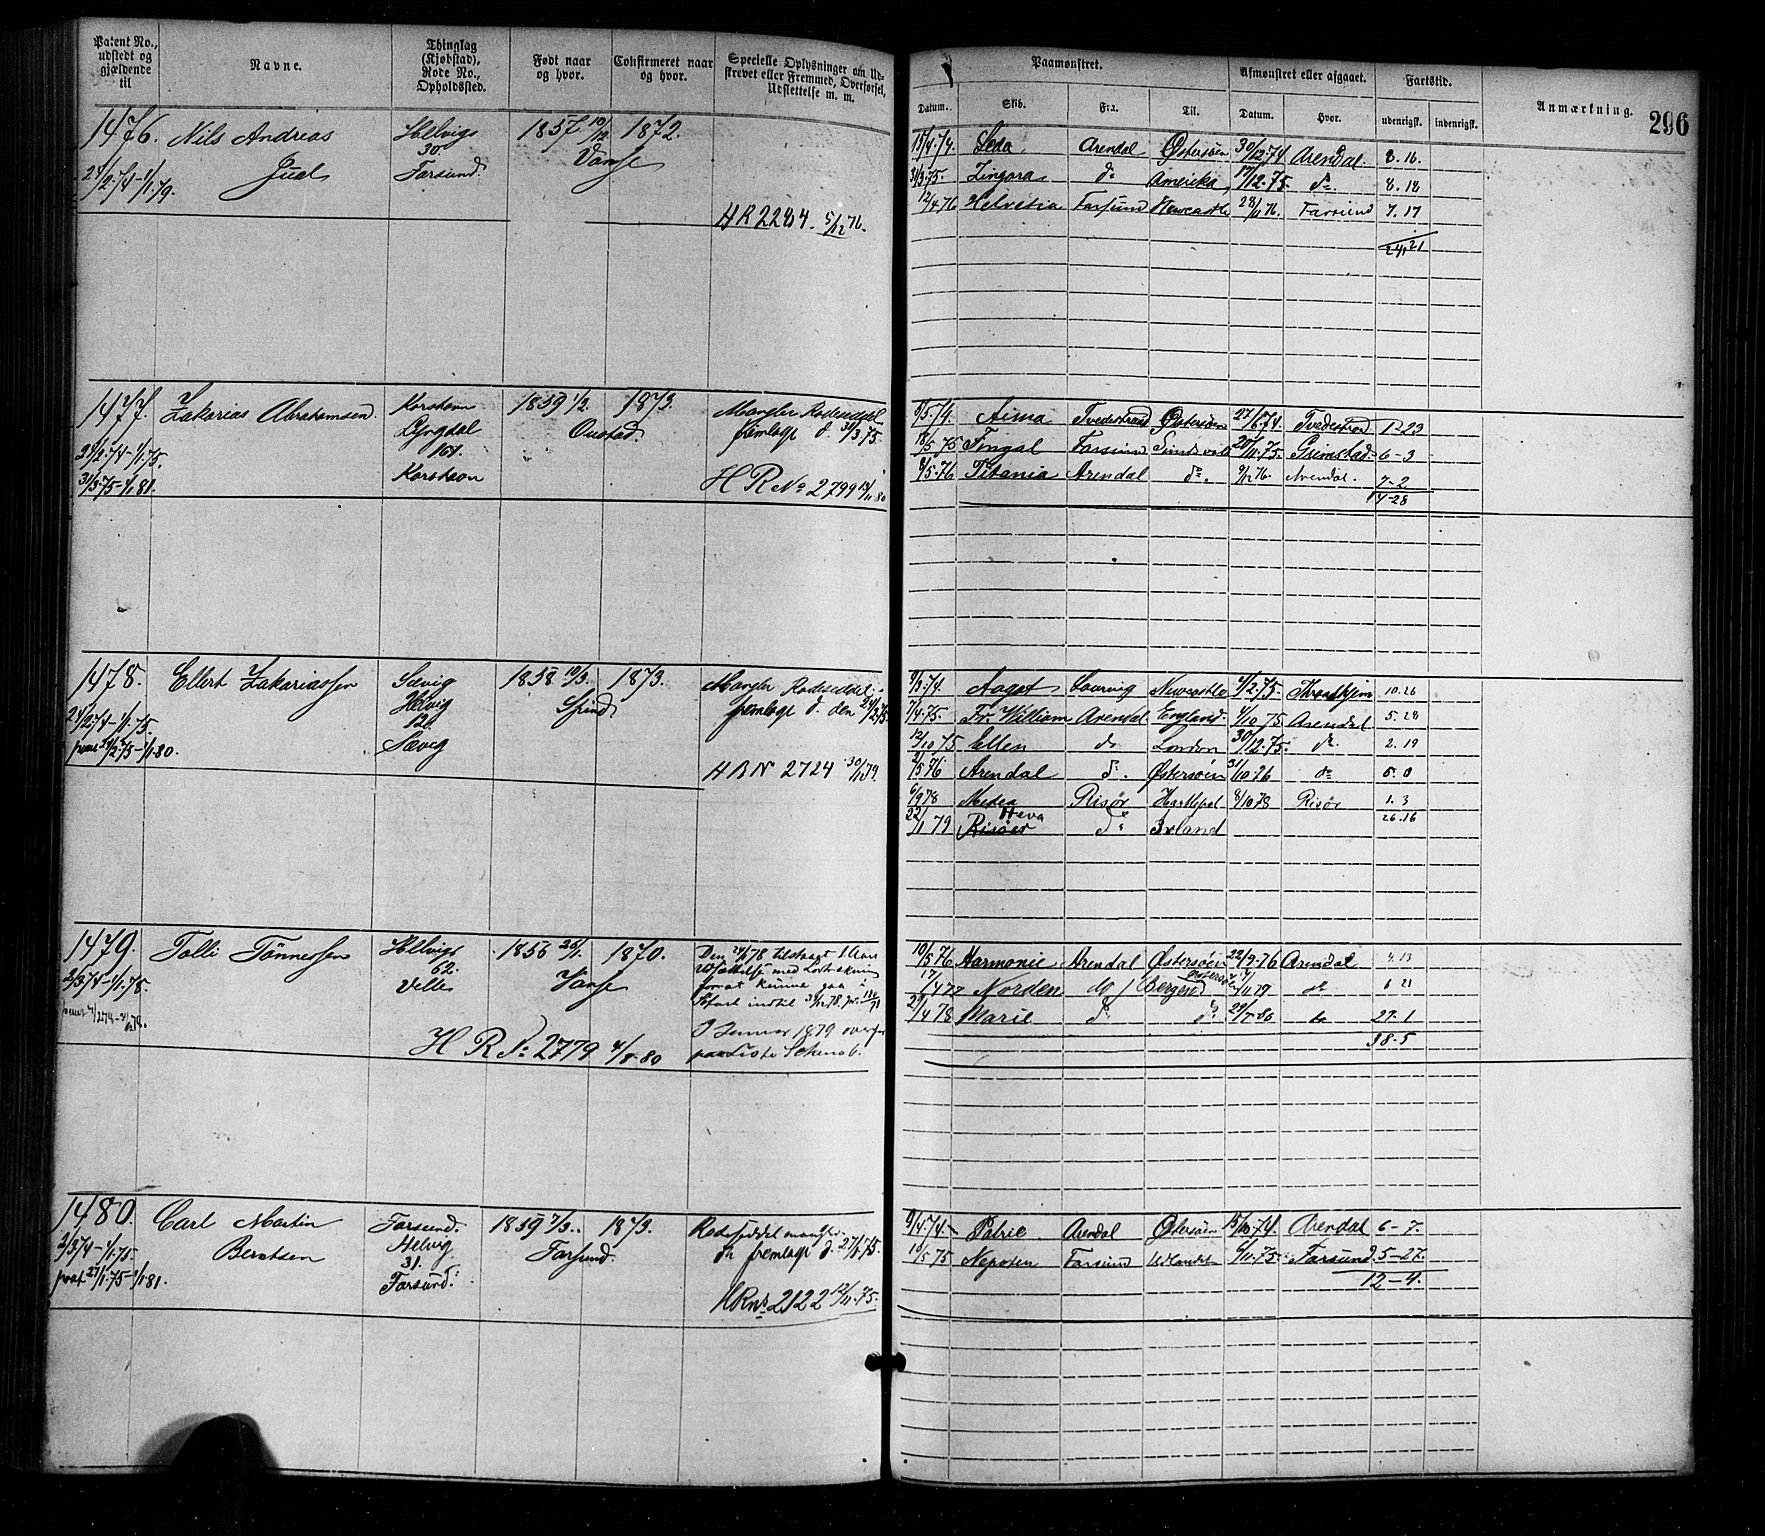 Patent No., udstedt og gjældende til
Navne.
Thinglag (Kjøbstad), Rode No., Opholdssted.
Født naar og hvor.
Confirmeret naar og hvor.
Specielle Oplysninger om Udskrevet eller Fremmed, Overførsel, Udslettelse m. m.
Paamønstret.
Datum.
Skib.
Fra.
Til.
Afmønstret eller afgaaet.
Datum.
Hvor.
Fartstid.
udenrigst.
indenrigst.
Anmærkning.
296
1476. Nils Andreas Helvigs 1857 10/12 1872.
30. Vanse
Juel Farsund
24/2.74-1/1.79.
HR 2284. 5/12 76.
15/4.74. Leda Arendal Østersøen 30/12.74 Arendal 8.16.
31/3.75. Zingara do Amerika 17/12.75. do 8.18
12/4 76 Helvetia Farsund Newcastle 28/11 76. Farsund 7.17
24.21
1477. Zakarias Abrahamsen Korshavn 1859 1/2 1873. Mangler Rodeseddel
Lyngdal fremlagt d. 31/3.75.
24/2.74-1/1.75. 164.
31/3.75-1/1.81. Korshavn H R No 2799 13/11 80
5/5.74. Tvedestrand Østersøen 27/6.74. Tvedestrand 1-23
18/5 75 Fingal Farsund Sundsvall 20/11.75. Grimstad 6-3
9/5.76 Titania Arendal do. 9/12 76. Arendal. 7-2
14-28
1478. Ellert Zakariassen Sævig 1858 10/3. 1873. Mangler Rodeseddel
Helvig Spind fremlagt d. den 24/2.75
24/2.74-1/1.75. 121.
24/2.75-1/1.80. Sævig
H R No 2724 30/1 79.
9/3.74. Aagot Laurvig Newcastle 4/2.75. 10.26
7/4.75. Fr. William Arendal England. 4/10 75 Arendal 5.28
12/10 75 Ellen do London 30/12.75. do 2.19
2/5 76 Arendal do. Østersøen 31/10 76 do 5.0
6/9 78 Medea Risør Hartlepol 8/10 78 Risør 1.3
22/1 79 Heva do Irland 26.16
1479. Tolli Tønnessen Helvigs 1856 25/1. 1870.
62. Vanse
2/3 74-1/1.78. Velle
H R No 2779 4/8-80
I Januar 1879 overf
paa Liste Schema 6.
10/5 76 Harmonie Arendal Østersøen 22/9-76 Arendal 4.13
17/4 77 Norden do Bergen do 6 21
29/4 78 Marie do do 29/7-80 do 27.1
38.5
1480. Carl Martin Farsund. 1859 7/3.. 1873. Rodeseddel mangler
Berntsen Helvig Farsund. fremlagt d. 27/1.75.
2/3 74-1/1.75 31.
27/1.75-1/1 81. Farsund.
HRNo 2122 12/11.75.
9/4.74. Patrie Arendal Østersøen 15/10.74. Arendal 6-7.
10/5 75 Nepoten Farsund Udlandet 6/11.75. Farsund 5-27.
12-4.